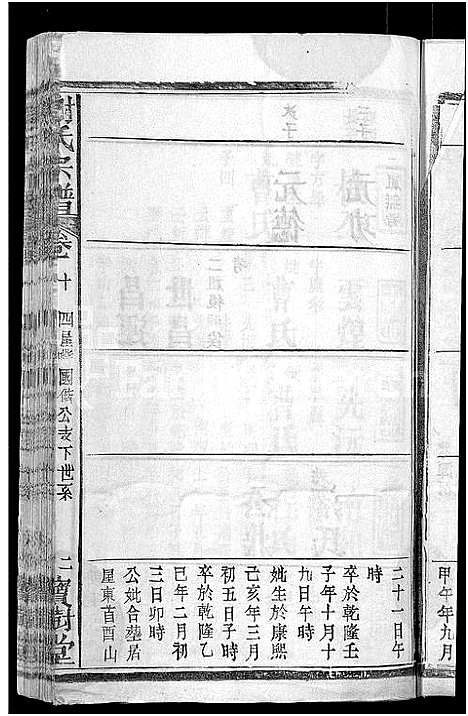 甲午年九月
二十一日午
時
卒於乾隆壬
子年十月十
九日午時
妣生於康熙
己亥年三月
初五日子時
卒於乾隆乙
巳年二月初
三日卯時
公妣合塟居
屋東首酉山
謝氏宗譜
卷 十四
國偕公支下世系
二 寶樹堂